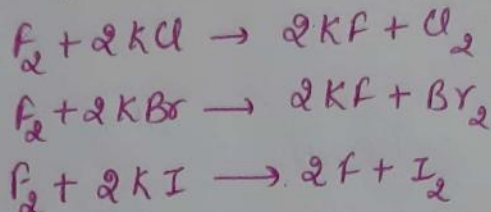 F₂ + 2KCl → 2KF + Cl₂
F₂ + 2KBr → 2KF + Br₂
F₂ + 2KI → 2F + I₂